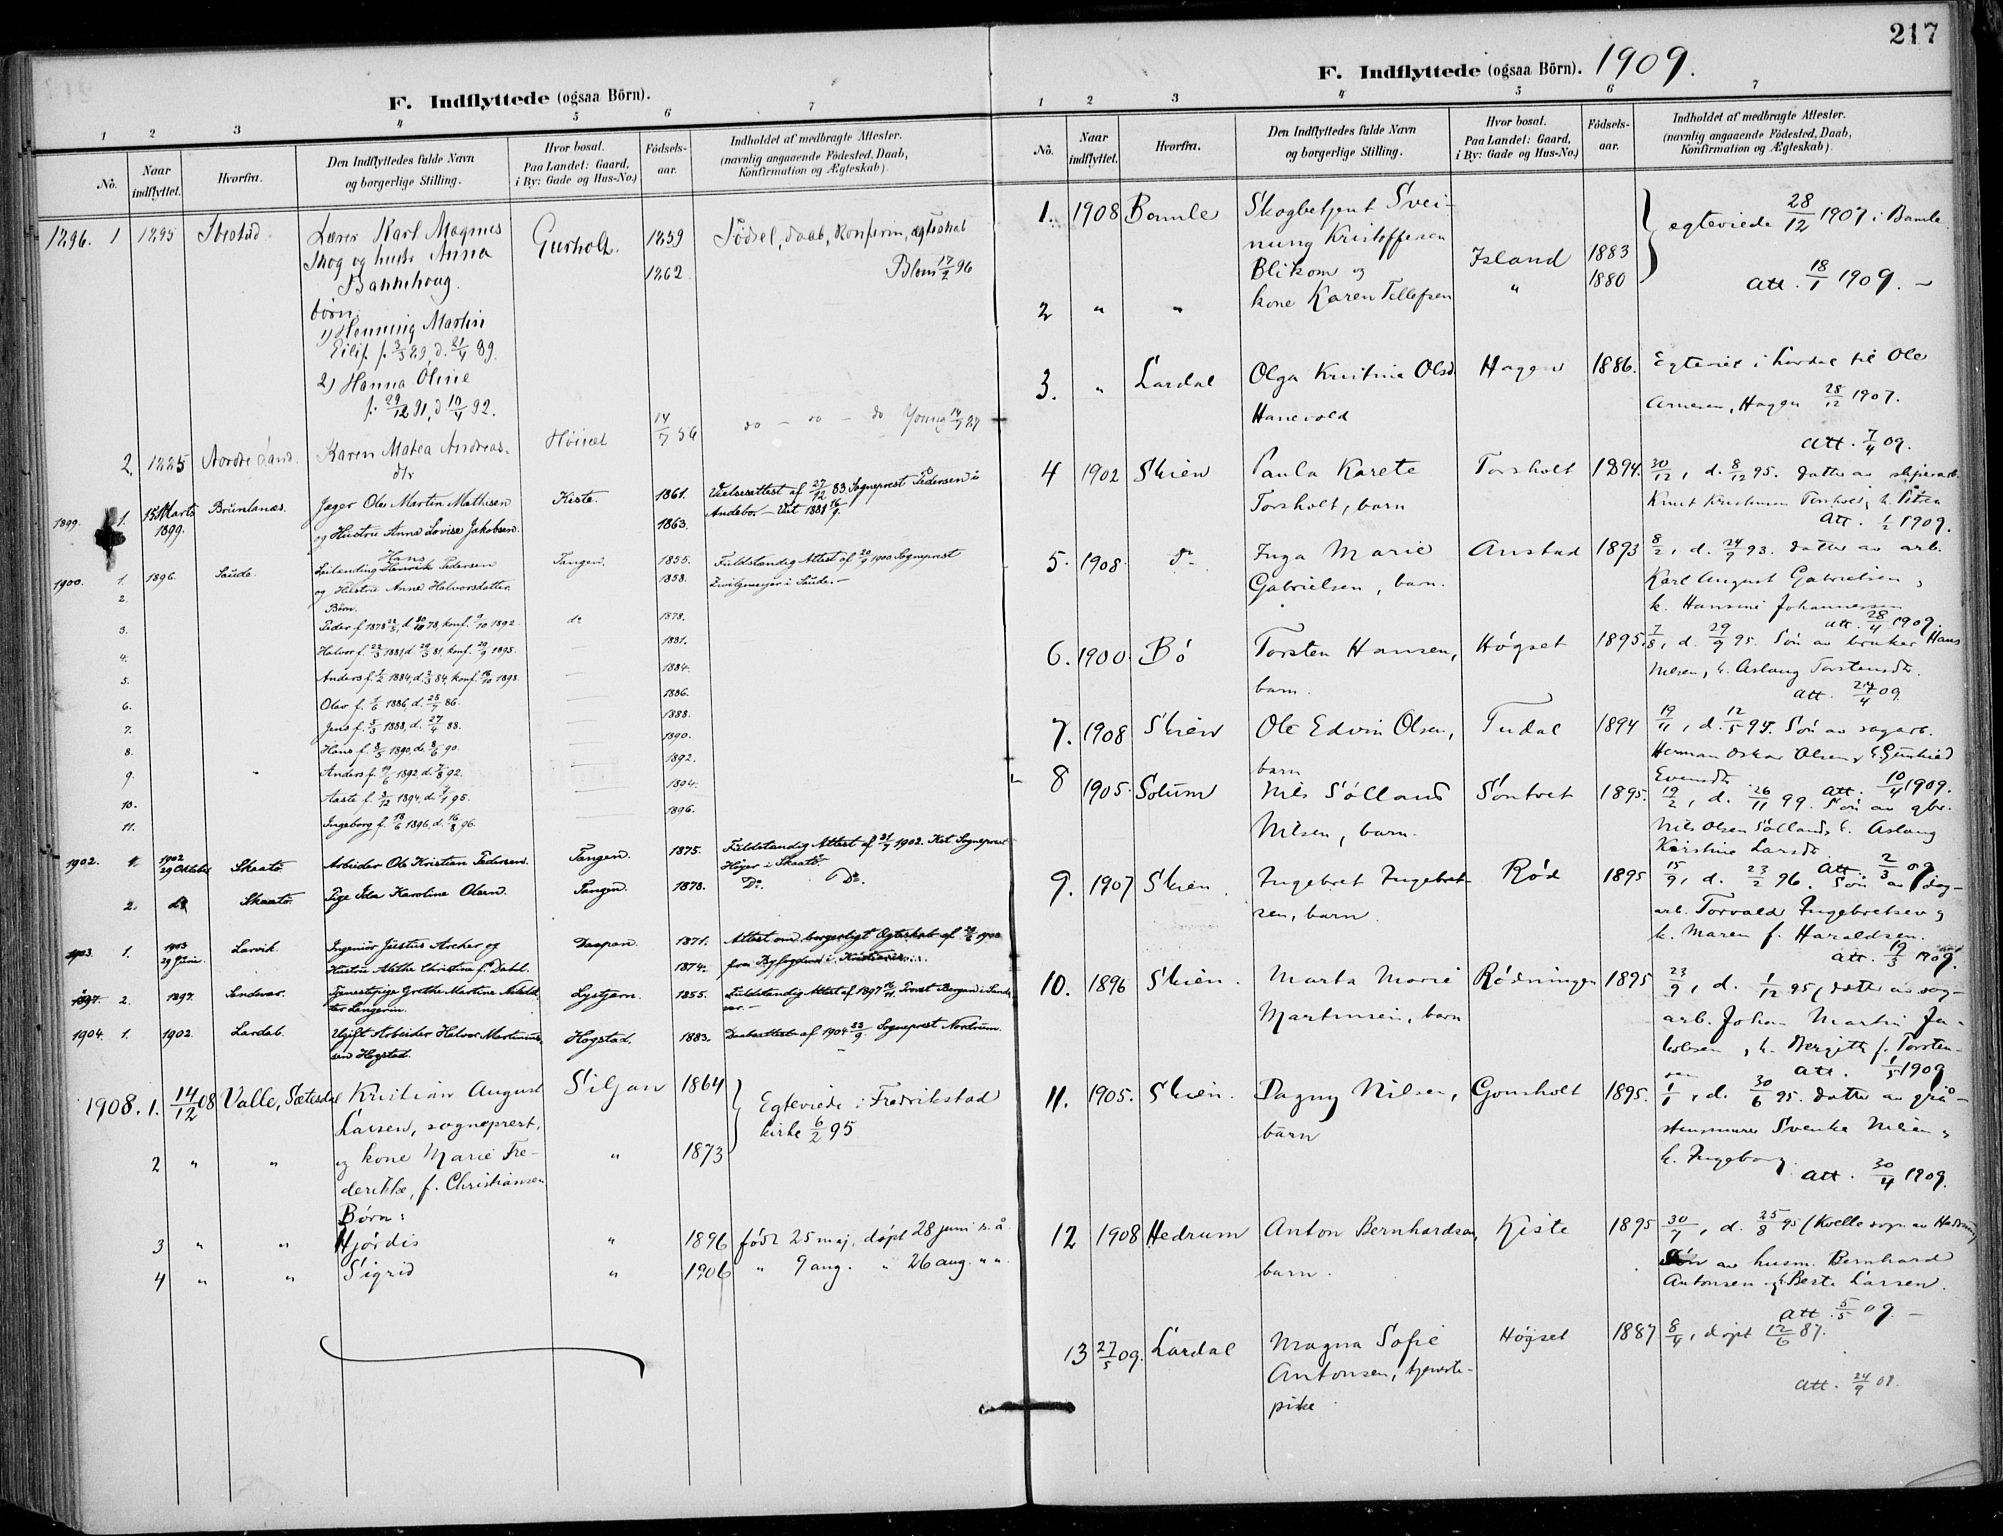 F. Indflyttede (ogsaa Börn).
1 2 3 4 5 6 7
No.
Naar indflyttet.
Hvorfra.
Den Indflyttedes fulde Navn og borgerlige Stilling.
Hvor bosat. Paa Landet: Gaard, i By: Gade og Hus-No.)
Födsels-aar.
Indholdet af medbragte Attester. (navnlig angaaende Födested, Daab, Konfirmation og Ægteskab)
1896. 1 1895 Ibestad Lærer Karl Magnus Gurholt. 1859 Födsel, daab, konfirm, ægteskab
Skog og hustr. Anna 1862 Blom 17/2 96
Bakkehaug.
børn:
1) Henning Martin
Eilif f. 3/3 89, d. 21/4 89.
2) Hanna Oline
f. 29/12 91, d. 10/4 92.
2. 1885 Nordre Land. Karen Matea Andreas- Høiset 14/7 56 do - do - do Young 14/7 87
dtr
1899. 1. 15 Marts Brunlanæs. Jæger Ole Martin Mathisen Kiste. 1861. Vielsesattest af 27/12 83 Sogneprest Pedersen i
1899. og Hustru Anne Lovise Jakobsen. 1863. Andebo.
Hans
1900. 1. 1896. Saude. Leilending Henrik Pedersen Tangen. 1855. Fuldstændig Attest af 20/9 1900 Sogneprest
2. og Hustru Anne Halvorsdatter 1858. Zwilgmeyer i Saude.-
Børn.
3. Peder f. 1878 22/3, d. 20/10 78, konf. 9/10 1892. do 1878.
4. Halvor f. 23/3 1881, d. 29/3 81, konf. 29/9 1895. — 1881.
5. Anders f. 1/2 1884, d. 2/3 84, konf. 16/10 1898. — 1884.
6. Olav f. 1/6 1886, d. 25/7 86. — 1886.
7. Jens f. 5/3 1888, d. 27/4 88. — 1888.
8. Hans f. 3/5 1890, d. 8/6 90. — 1890.
9. Anders f. 19/6 1892, d. 7/8 92. — 1892.
10. Aaste f. 3/12 1894, d. 2/1 95. — 1894.
11. Ingeborg f. 18/6 1896, d. 16/8 96. 1896.
1902. 1. 1902 29 Oktober Skaatö. Arbeider Ole Kristian Pedersen. Tangen. 1875. Fuldstændig Attest af 21/7 1902. Kst. Sogneprest
Höyer i Skaatö.
2. do Skaatö. Pige Ida Karoline Olsen. Tangen. 1878. Do. Do.
1903. 1. 1903 29 Juni. Larvik. Ingeniør Justus Archer og 1871. Attest om borgerligt Ægteskab af 1900
Hustru Mathe Christine f. Dahl. 1874. fra Byfogden i Kristiania.
1897. 2. 1897. Sandevær. Tjenestepige Grethe Martine Lystjern. 1855. Fuldstændig Attest af 1897
1904. 1. 1902. Lardal. Ugift Arbeider Halvor Martinius- Hogstad. 1883. Daabsattest af 1904 23/9. Sogneprest Nordrum.
sen Hogstad.
1908. 1. 14/12 08 Valle, Sætesdal Kristian August Siljan 1864 Egteviede i Fredrikstad
Larsen, sogneprest, kirke 6/2 95
2 " " og kone Marie Fre- " 1873
derikke, f. Christiansen
Børn:
3 " " Hjørdis " 1896 født 25 maj, døpt 28 juni s. å.
4 " " Sigrid " 1906 " 9 aug. " 26 aug. " ".
217
F. Indflyttede (ogsaa Börn). 1909.
1 2 3 4 5 6 7
No.
Naar indflyttet.
Hvorfra.
Den Indflyttedes fulde Navn og borgerlige Stilling.
Hvor bosat. Paa Landet: Gaard, i By: Gade og Hus-No.)
Födsels-aar.
Indholdet af medbragte Attester. (navnlig angaaende Födested, Daab, Konfirmation og Ægteskab)
1. 1908 Bamle Skogbetjent Svei- egteviede 28/12 1907 i Bamle.
nung Kristoffersen Island 1883
Blikom og " 1880 att. 18/1 1909. -
2 " " kone Karen Tellefsen
3. " Lardal Olga Kristine Olsd. Hagen 1886. Egteviet i Lardal til Ole
Hanevold Arnesen, Hagen 28/12 1907.
att. 7/4 09.
4 1902 Skien Paula Karete Torsholt 1894. 30/12, d. 8/12 95. datter av
Torsholt, barn Knut Kristiansen Torsholt,
att. 1/2 1909.
5. 1908 do Inga Marie Anstad 1893 8/2, d. 24/9 93. datter av arb.
Gabrielsen, barn. Karl August Gabrielsen
k. Hansine Johannessen
att. 28/4 1909.
6. 1900 Bø Torsten Hansen, Høgset 1895. 7/8, d. 29/9 95. Søn av bruker Hans
barn. Nilsen, k. Aslaug Torstensdtr.
att. 27/4 09.
7. 1908 Skien Ole Edvin Olsen, Tudal 1894 19/11, d. 12/5 95. Søn av sagarb.
barn Herman Oskar Olsen, k. Gunhild
Evensdtr att. 10/4 1909.
8 1905. Solum Nils Sølland Søntvet 1895. 19/2, d. 26/11 99. Søn av gbr.
Nilsen, barn. Nils Olsen Sølland, k. Aslaug
Kirstine Larsdtr att. 2/3 09
9. 1907 Skien. Ingebret Ingebret- Rød 1895 15/9, d. 23/2 96. Søn av dag-
sen, barn. arb. Torvald Ingebretsen og
k. Maren f. Haraldsen.
att. 19/3 1909.
10. 1896 Skien. Marta Marie Rødningen 1895 23/9, d. 1/12 95, datter av sag-
Martinsen, barn arb. Johan Martin Ja-
kobsen, k. Bergitte f. Torsten-
sen att. 1/5 1909
11. 1905. Skien. Dagny Nilsen, Gonsholt 1895. 1/1, d. 30/6 95. datter av grå-
barn stensmurer Svenke Nilsen og
k. Ingeborg. att. 30/4 1909.
12 1908 Hedrum Anton Bernhardsen, Kiste 1895 30/7, d. 25/8 95 (Kvelle sogn av Hedrum)
barn. Søn av husm. Bernhard
Antonsen og Berte Larsen.
att. 5/5 09. -
13 27/5 09. Lardal Magna Sofie Høgset 1887 8/4, døpt 12/6 87.
Antonsen, tjeneste-
pike. att. 24/9 09.